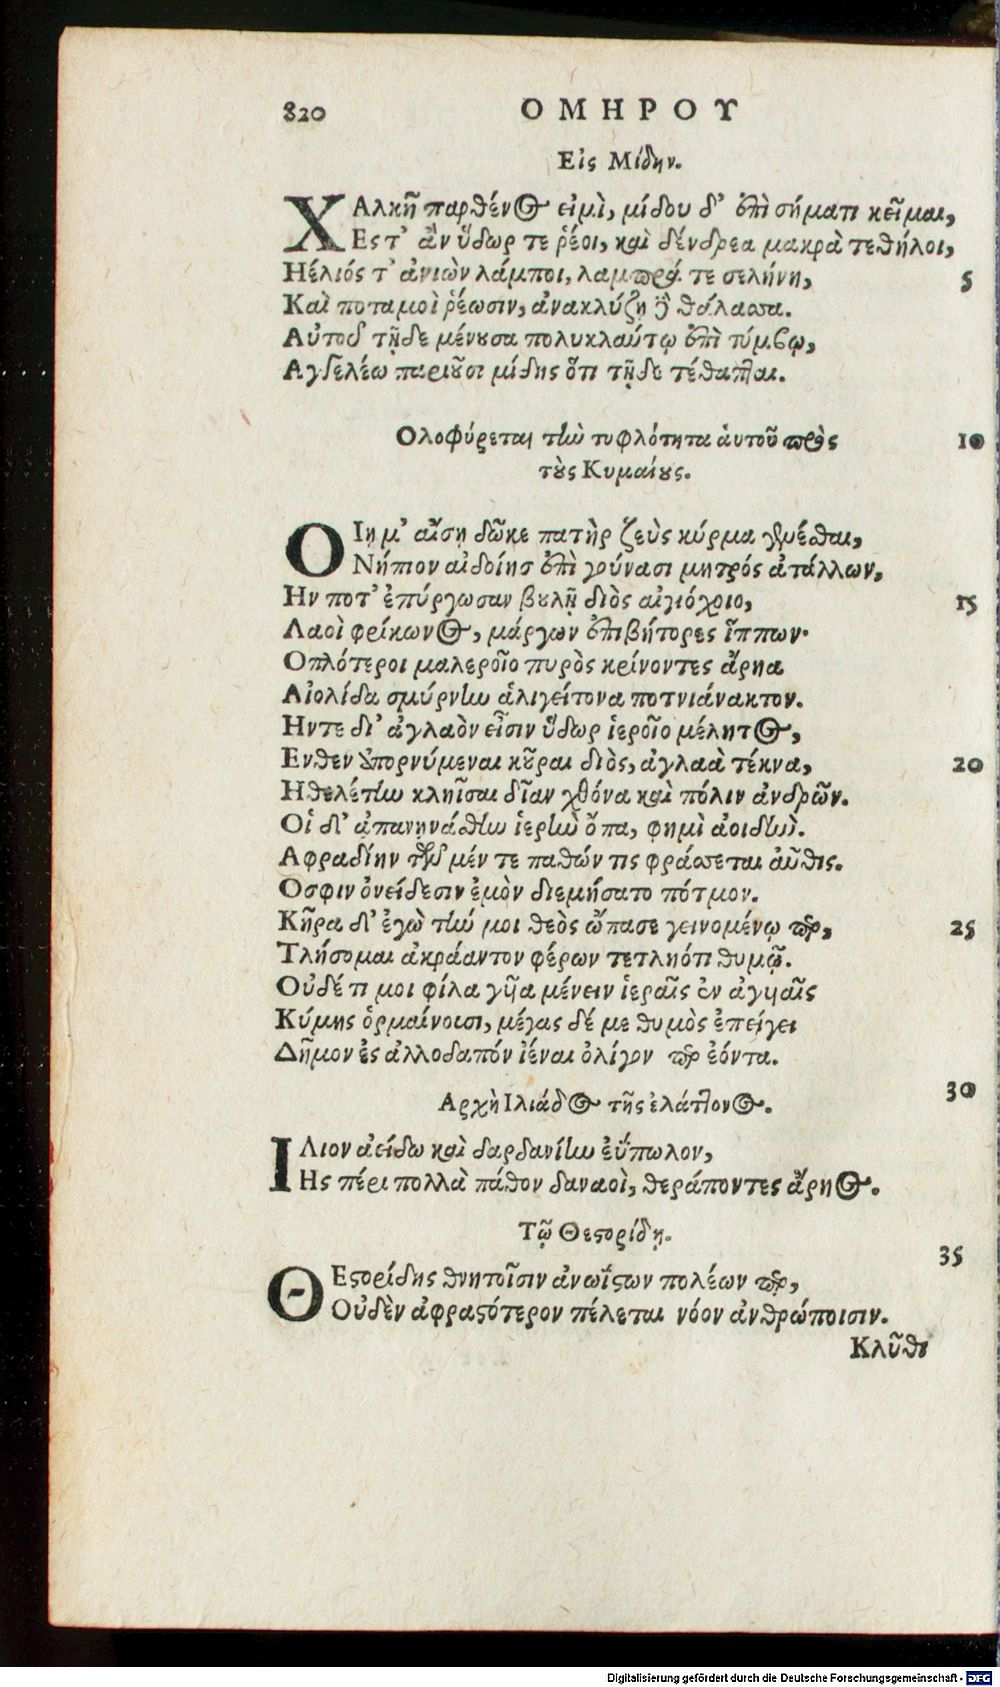 820 ΟΜΗΡΟΥ
Εἰς Μίδην.
ΧΑλκῆ παρθένος εἰμὶ, μίδου δ' ἐπὶ σήματι κεῖμαι,
Εστ' ἂν ὕδωρ τε ῥέοι, καὶ δένδρεα μακρὰ τεθήλοι,
Ηέλιός τ' ἀνιὼν λάμποι, λαμπρά τε σελήνη, 5
Καὶ ποταμοὶ ῥέωσιν, ἀνακλύζῃ δὲ θάλασσα.
Αὐτοῦ τῇδε μένουσα πολυκλαύτῳ ἐπὶ τύμβῳ,
Αγγελέω παριοῦσι μίδης ὅτι τῇδε τέθαπται.
Ολοφύρεται τὴν τυφλότητα αὑτοῦ πρὸς 10
τοὺς Κυμαίους.
ΟΙη μ' αἴσῃ δῶκε πατὴρ ζεὺς κύρμα γενέσθαι,
Νήπιον αἰδοίης ἐπὶ γούνασι μητρός ἀτάλλων,
Ην ποτ' ἐπύργωσαν βουλῇ διὸς αἰγιόχοιο, 15
Λαοὶ φρίκωνος, μάργων ἐπιβήτορες ἵππων·
Οπλότεροι μαλεροῖο πυρὸς κρίνοντες ἄρηα
Αἰολίδα σμύρνην ἁλιγείτονα ποτνιάνακτον.
Ηντε δι' ἀγλαὸν εἶσιν ὕδωρ ἱεροῖο μέλητος,
Ενθεν ἀπορνύμεναι κοῦραι διὸς, ἀγλαὰ τέκνα, 20
Ηθελέτην κληῖσαι δῖαν χθόνα καὶ πόλιν ἀνδρῶν.
Οἱ δ' ἀπανηνάσθην ἱερὴν ὄπα, φημὶ ἀοιδὴν.
Αφραδίην τῶν μέν τε παθών τις φράσσεται αὖθις.
Οσφιν ὀνείδεσιν ἐμὸν διεμήσατο πότμον.
Κῆρα δ' ἐγὼ τήν μοι θεὸς ὤπασε γεινομένῳ περ, 25
Τλήσομαι ἀκράαντον φέρων τετληότι θυμῷ.
Οὐδέ τι μοι φίλα γυῖα μένειν ἱεραῖς ἐν ἀγυιαῖς
Κύμης ὁρμαίνουσι, μέγας δέ με θυμὸς ἐπείγει
Δῆμον ἐς ἀλλοδαπόν ἰέναι ὀλίγον περ ἐόντα.
Αρχὴ Ιλιάδος τῆς ἐλάττονος. 30
ΙΛιον ἀείδω καὶ δαρδανίην ἐΰπωλον,
Ης πέρι πολλὰ πάθον δαναοὶ, θεράποντες ἄρηος.
Τῷ Θεστορίδῃ.
ΘΕστορίδης θνητοῖσιν ἀνωΐστων πολέων περ, 35
Οὐδὲν ἀφραστότερον πέλεται νόου ἀνθρώποισιν.
Κλῦθι
Digitalisierung gefördert durch die Deutsche Forschungsgemeinschaft - DFG